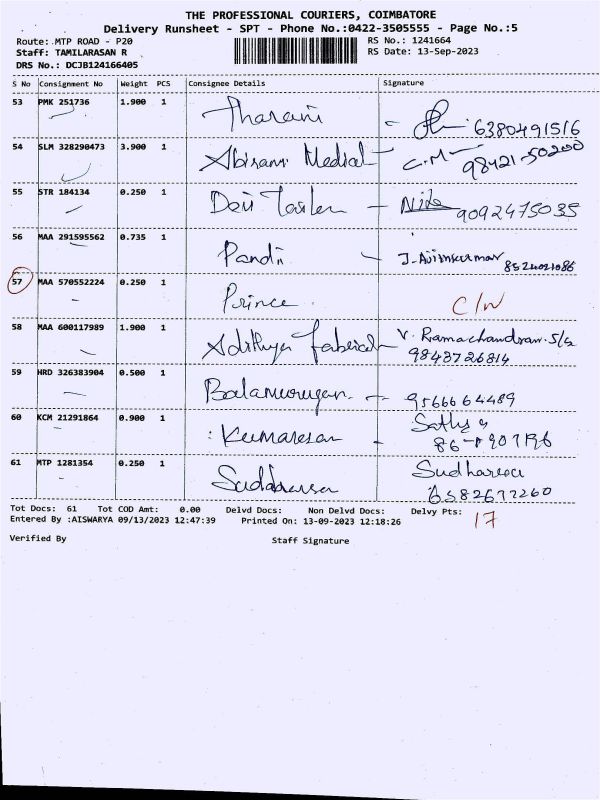 THE PROFESSIONAL COURIERS, COIMBATORE
Delivery Runsheet - SPT - Phone No.:0422-3505555 - Page No.:5
Route: MTP ROAD - P20 RS No.: 1241664
Staff: TAMILARASAN R RS Date: 13-Sep-2023
DRS No.: DCJB124166405
S No Consignment No Weight PCS Consignee Details Signature
53 PMK 251736 1.900 1 Tharani 6380491516
54 SLM 328290473 3.900 1 Abirami Medical C.M 98421-50200
55 STR 184134 0.250 1 Devi 9092475035
56 MAA 291595562 0.735 1 Pandi 8524021086
57 MAA 570552224 0.250 1 Prince C/N
58 MAA 600117989 1.900 1 V. Ramachandran
9843726814
59 HRD 326383904 0.500 1 Balamurugan 9566664489
60 KCM 21291864 0.900 1 Kumaresan
61 MTP 1281354 0.250 1
Tot Docs: 61 Tot COD Amt: 0.00 Delvd Docs: Non Delvd Docs: Delvy Pts: 17
Entered By :AISWARYA 09/13/2023 12:47:39 Printed On: 13-09-2023 12:18:26
Verified By Staff Signature